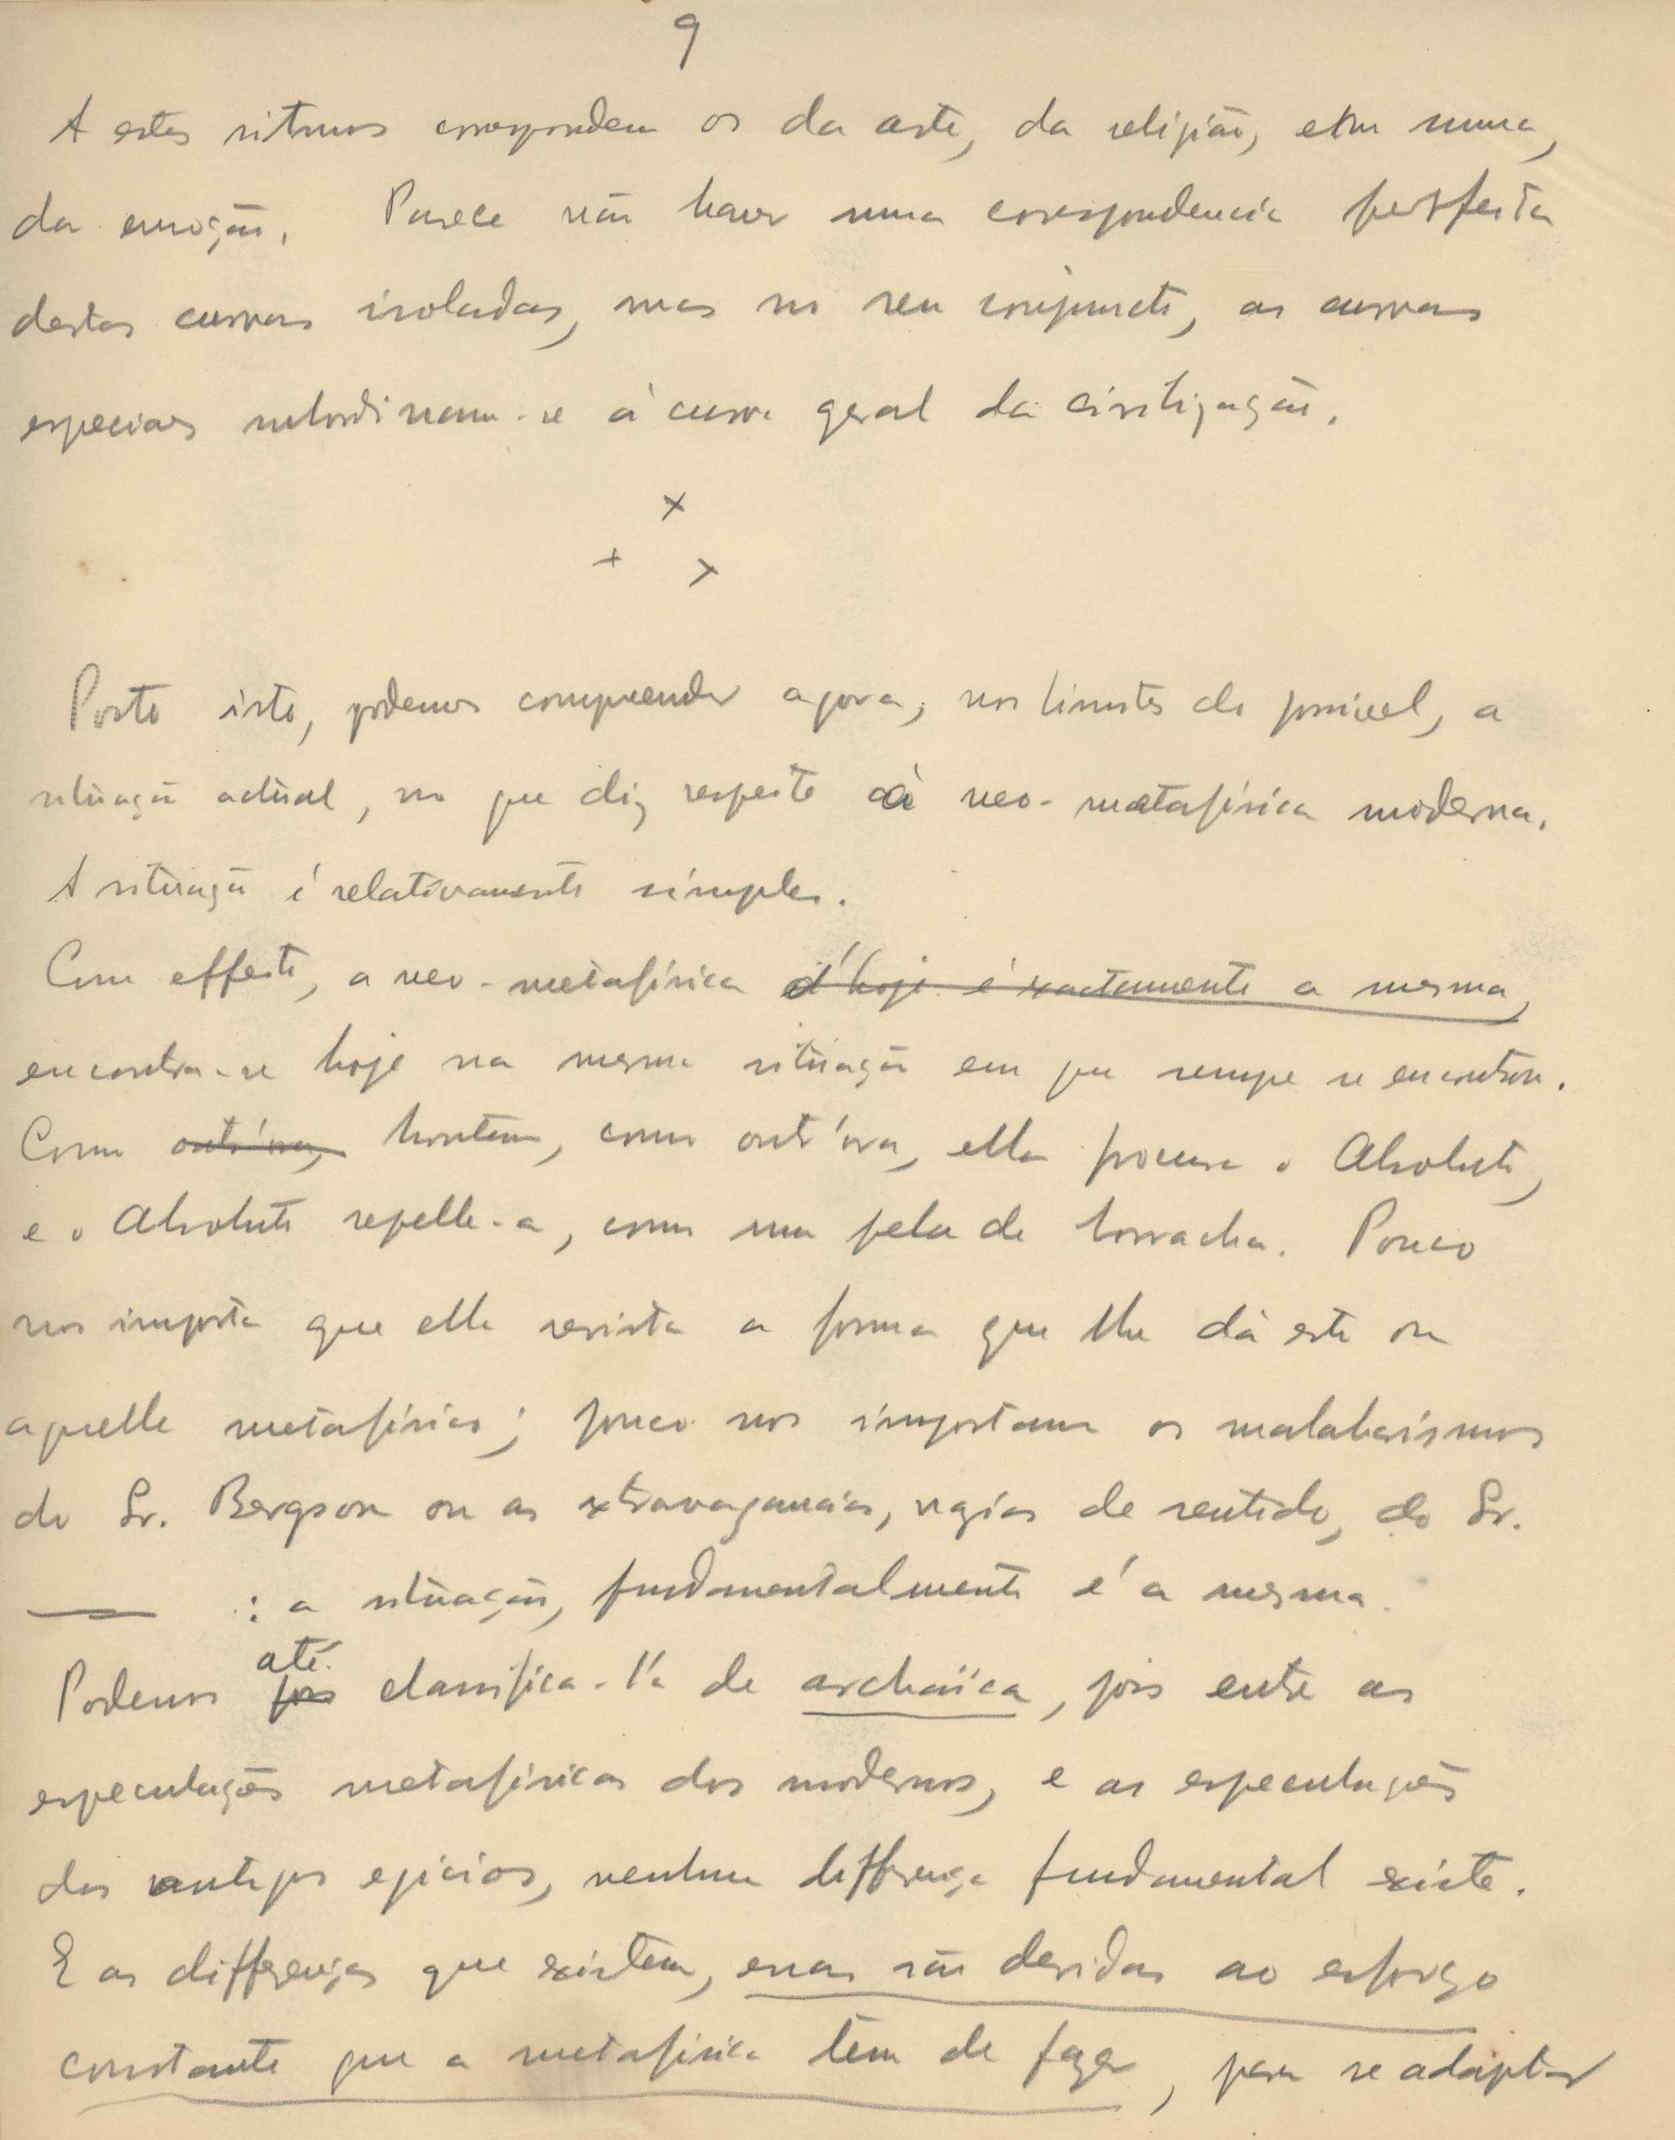 9
A estes ritmos correspondem os da arte, da religião, e em summa,
da emoção. Parece não haver uma correspondencia perfeita
destas curvas isoladas, mas no seu conjuncto, as curvas
especiaes subordinam-se á curva geral da civilização.
x
+ x
Posto isto, podemos comprehender agora, nos limites do possivel, a
situação actual, no que diz respeito á neo-metafísica moderna.
A situação é relativamente simples.
Com effeito, a neo-metafísica d'hoje é exactamente a mesma,
encontra-se hoje na mesma situação em que sempre se encontrou.
Como outr'ora, hontem, como outr'ora, ella procura o Absoluto,
e o Absoluto repelle-a, como uma pela de borracha. Pouco
nos importa que ella revista a forma que lhe dá este ou
aquelle metafísico; pouco nos importam os malabarismos
do Sr. Bergson ou as extravagancias, vazias de sentido, do Sr.
—— : a situação, fundamentalmente é a mesma.
até
Podemos pois classifica-l'a de archaïca, pois entre as
especulações metafísicas dos modernos, e as especulações
dos antigos egipcios, nenhuma differença fundamental existe.
E as differenças que existem, essas são devidas ao esforço
constante que a metafísica tem de fazer, para se adaptar